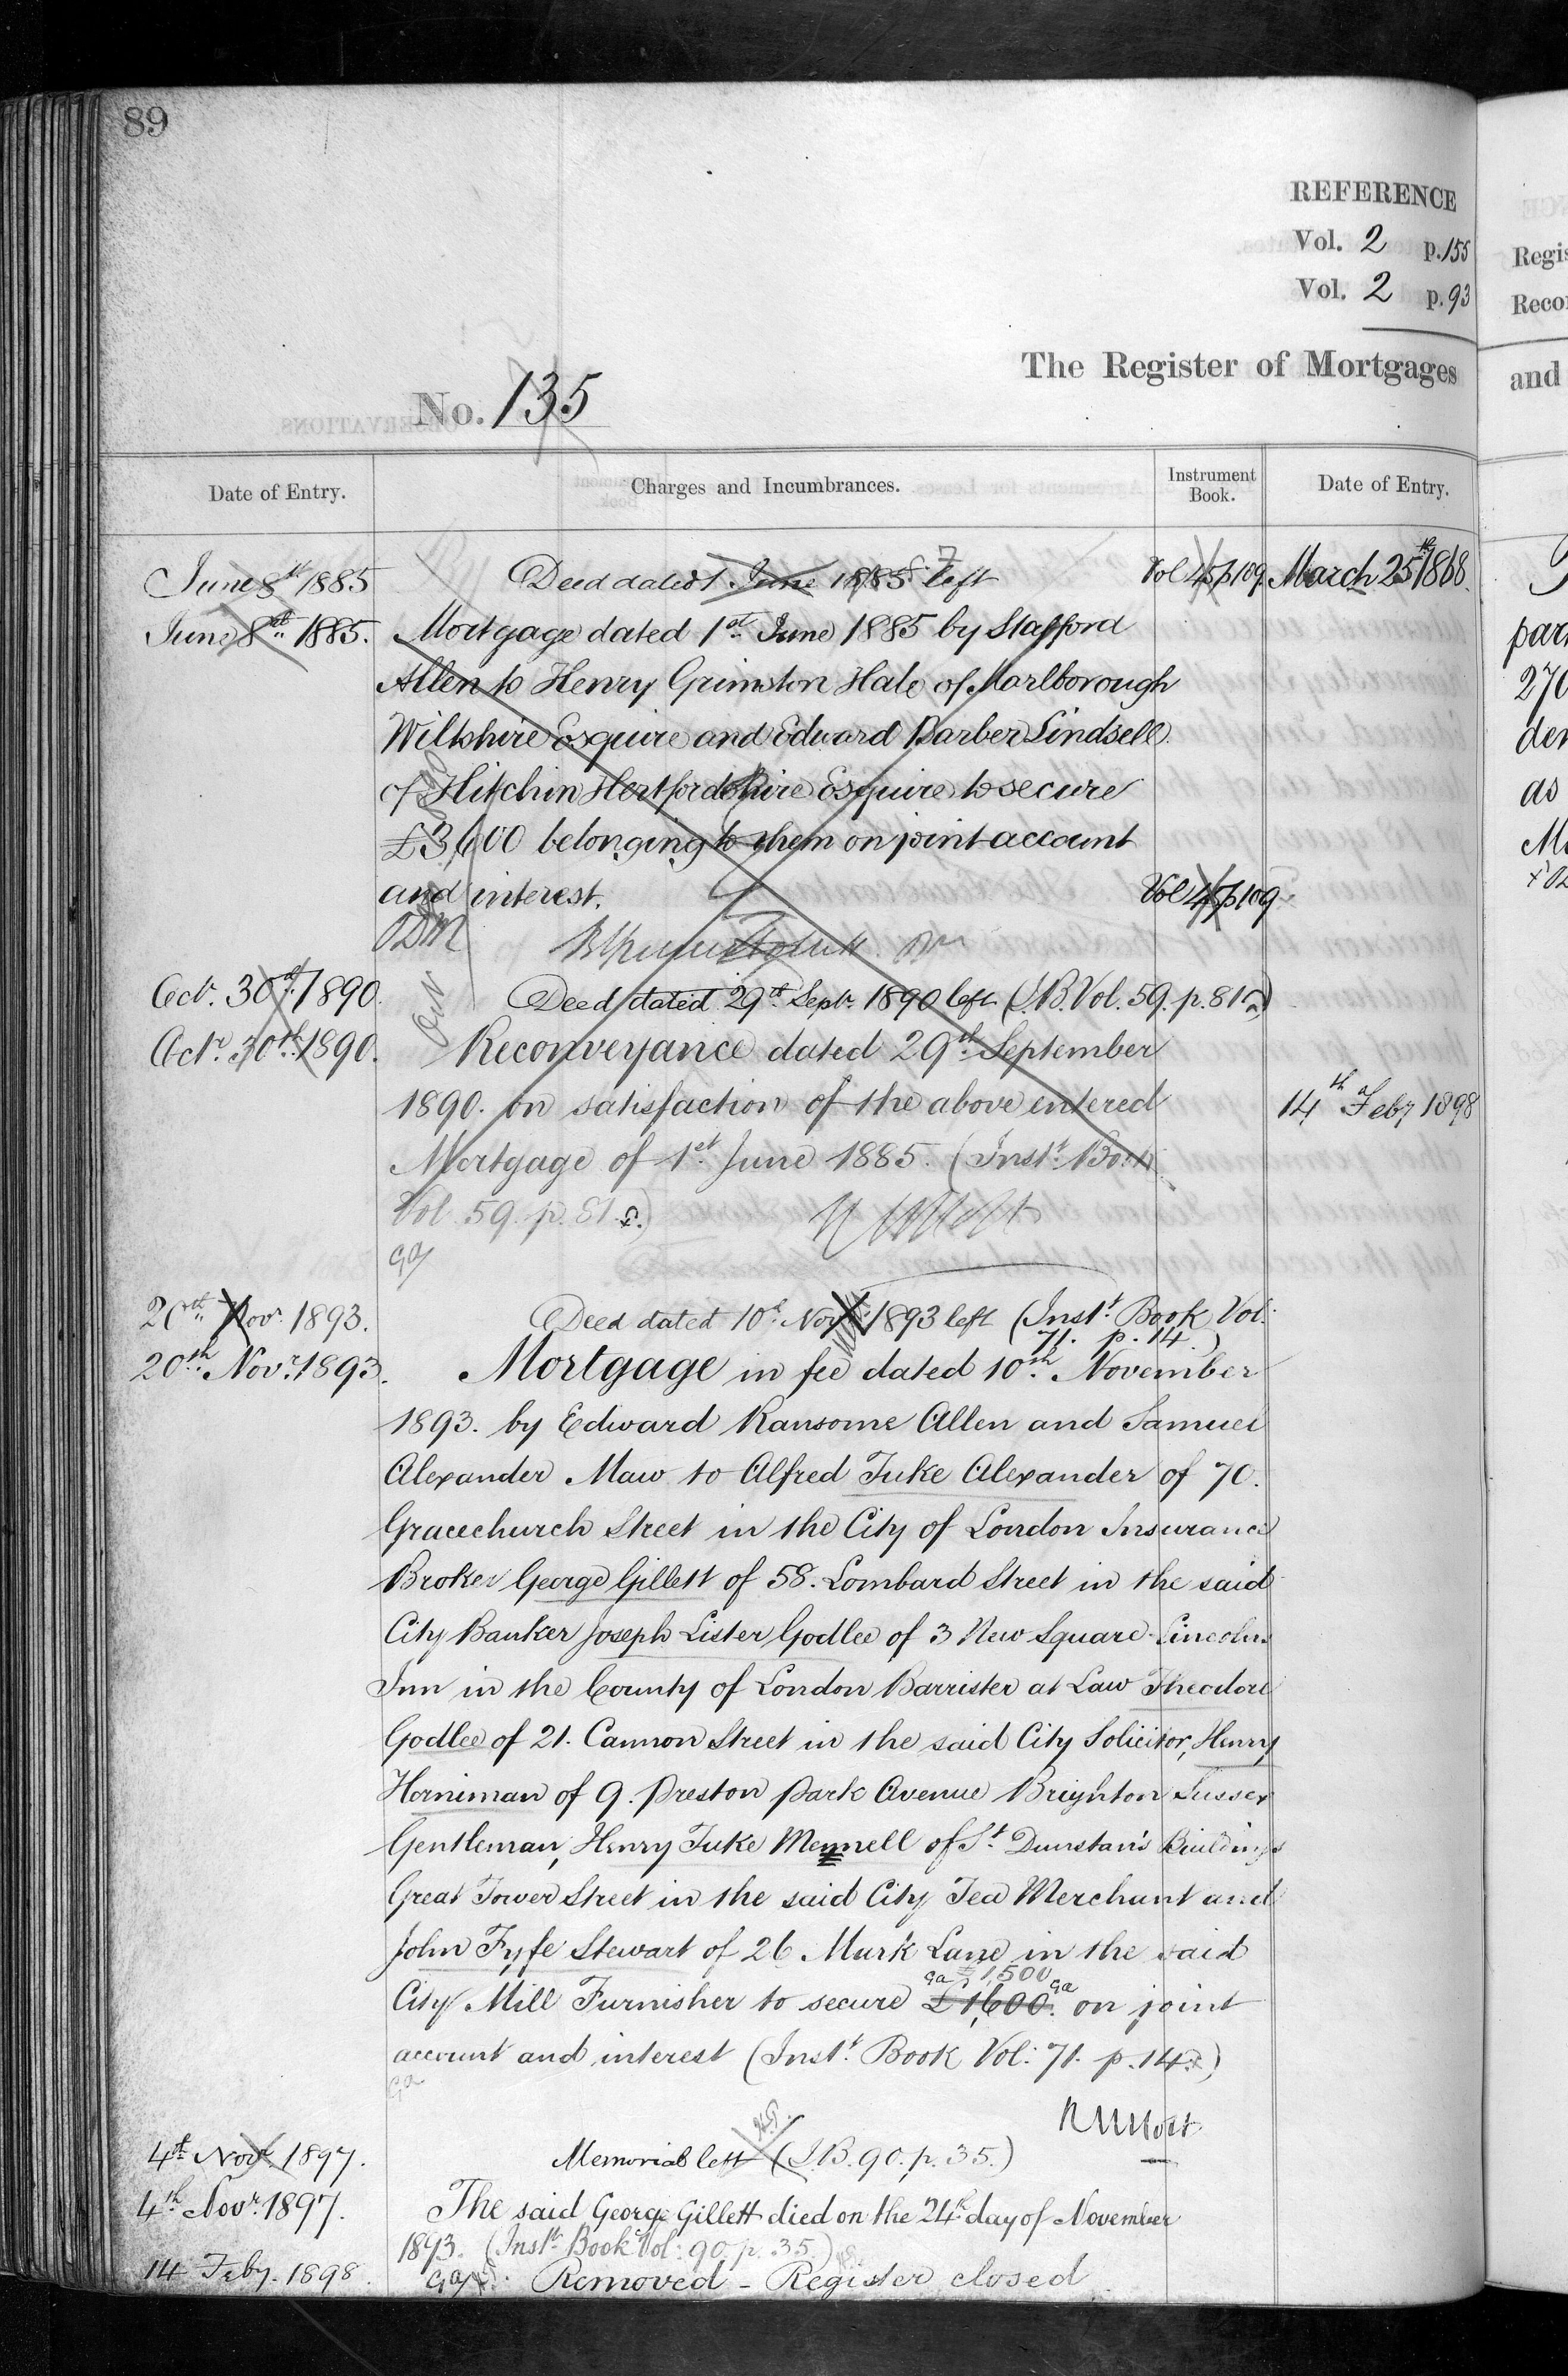 89
REFERENCE
Vol. 2 p. 155
Vol. 2 p. 93
The Register of Mortgages
No. 135
Date of Entry. Charges and Incumbrances. Instrument Book. Date of Entry.
June 8th 1885 Deed dated 1 June 1885 left Vol 45 p 109 March 25th 1868
June 8th 1885. Mortgage dated 1st June 1885 by Stafford
Allen to Henry Grimston Hale of Marlborough
Wiltshire Esquire and Edward Barber Lindsell
of Hitchin Hertfordshire Esquire to secure
£3,600 belonging to them on joint account
and interest. Vol 45 p 109
Oct. 30th 1890. Deed dated 29th Sept. 1890 left (I.B. Vol. 59. p. 81)
Octr. 30th 1890. Reconveyance dated 29th September
1890. on satisfaction of the above entered
14th Feby 1898
Mortgage of 1st June 1885. (Inst. Book
Vol. 59. p. 81.)
GA
20th Novr. 1893. Deed dated 10th Novr. 1893 left (Inst. Book Vol.
71. p. 14.)
20th Novr. 1893. Mortgage in fee dated 10th November
1893. by Edward Ransome Allen and Samuel
Alexander Maw to Alfred Tuke Alexander of 70.
Gracechurch Street in the City of London Insurance
Broker George Gillett of 58. Lombard Street in the said
City Banker Joseph Lister Godlee of 3 New Square Lincolns
Inn in the County of London Barrister at Law Theodore
Godlee of 21. Cannon Street in the said City Solicitor, Henry
Horniman of 9. Preston Park Avenue Brighton Sussex
Gentleman, Henry Tuke Mennell of St. Dunstan's Buildings
Great Tower Street in the said City Tea Merchant and
John Fyfe Stewart of 26 Mark Lane in the said
GA £1,500 GA
City Mill Furnisher to secure £1,600. on joint
account and interest (Inst. Book Vol: 71. p. 14)
GA
4th Novr. 1897. Memorial left (I.B. 90. p. 35.)
4th Novr. 1897. The said George Gillett died on the 24th day of November
1893. (Inst. Book Vol: 90. p. 35.)
14 Feby. 1898. GA Removed - Register closed
Regis
Reco
and
par
270
den
as